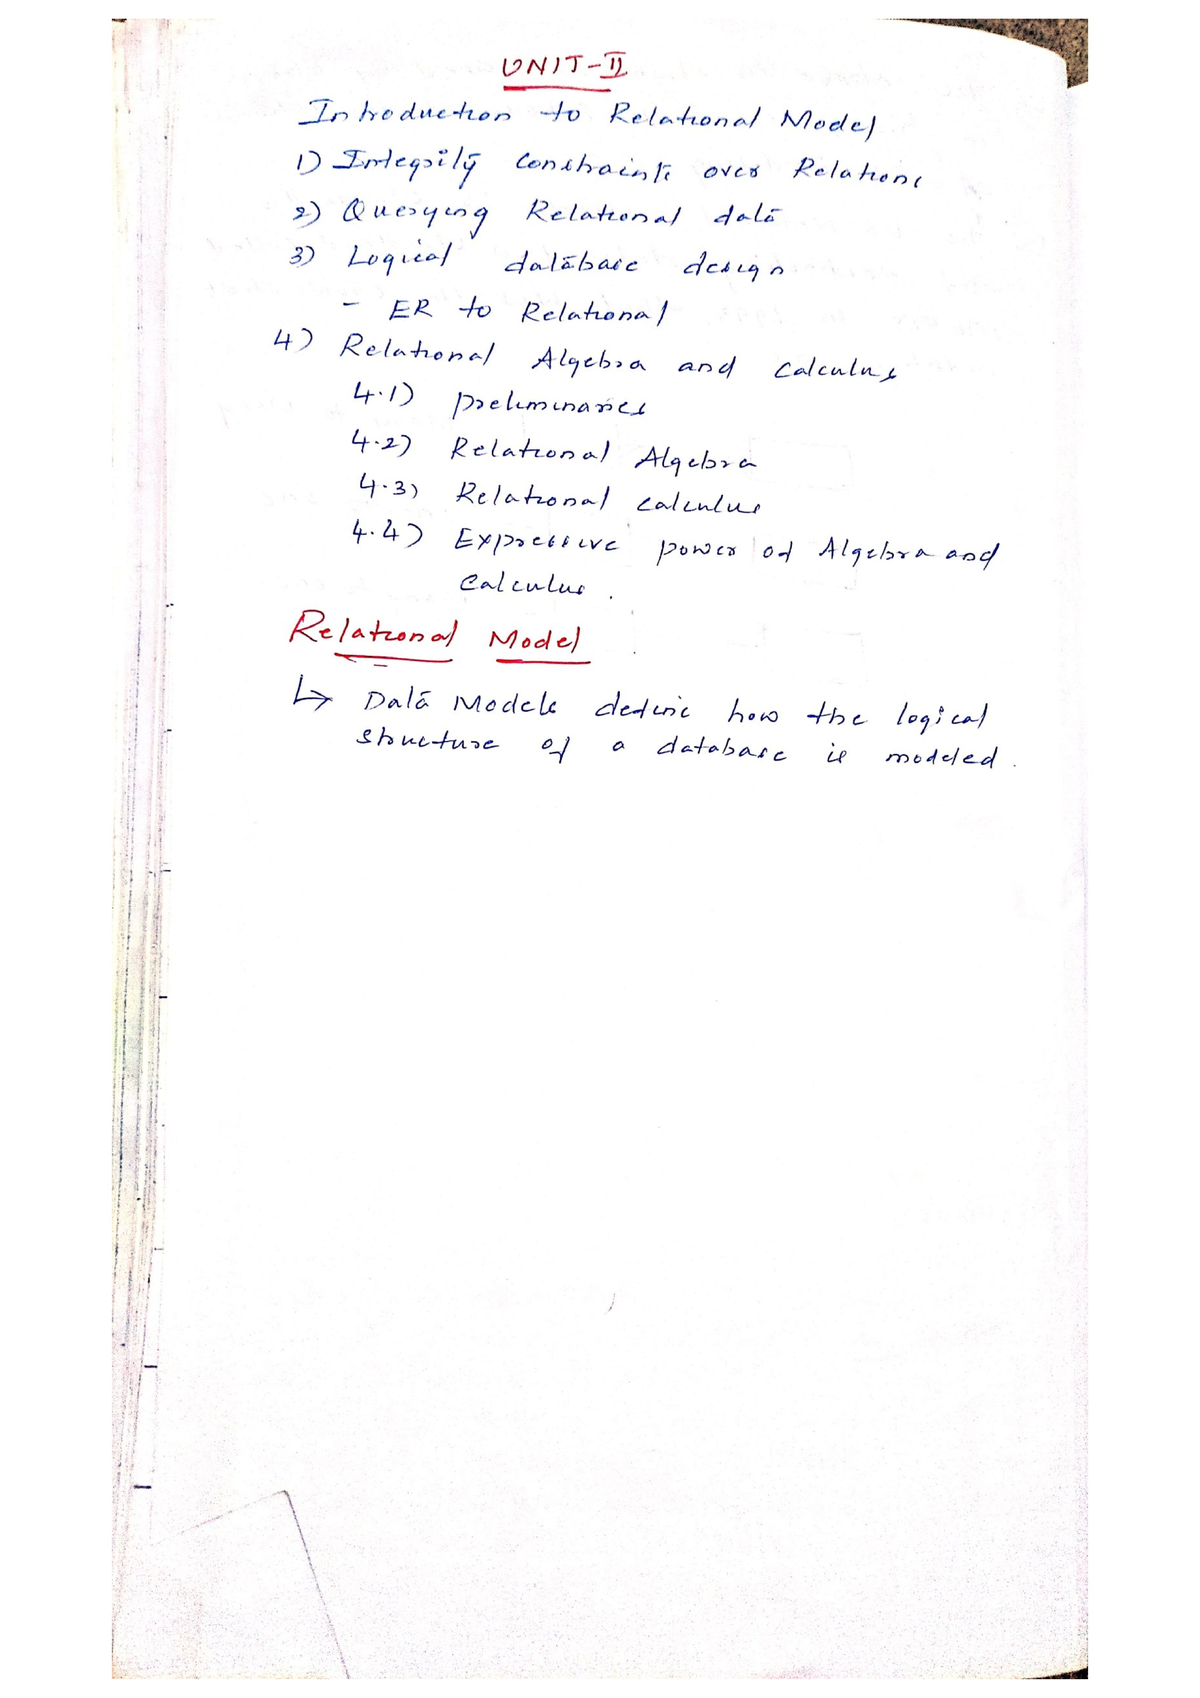 UNIT-II
Introduction to Relational Model
1) Integrity Constraints over Relations
2) Querying Relational data
3) Logical database design
- ER to Relational
4) Relational Algebra and Calculus
4.1) preliminaries
4.2) Relational Algebra
4.3) Relational calculus
4.4) Expressive power of Algebra and
Calculus.
Relational Model
↳ Data Models define how the logical
structure of a database is modeled.